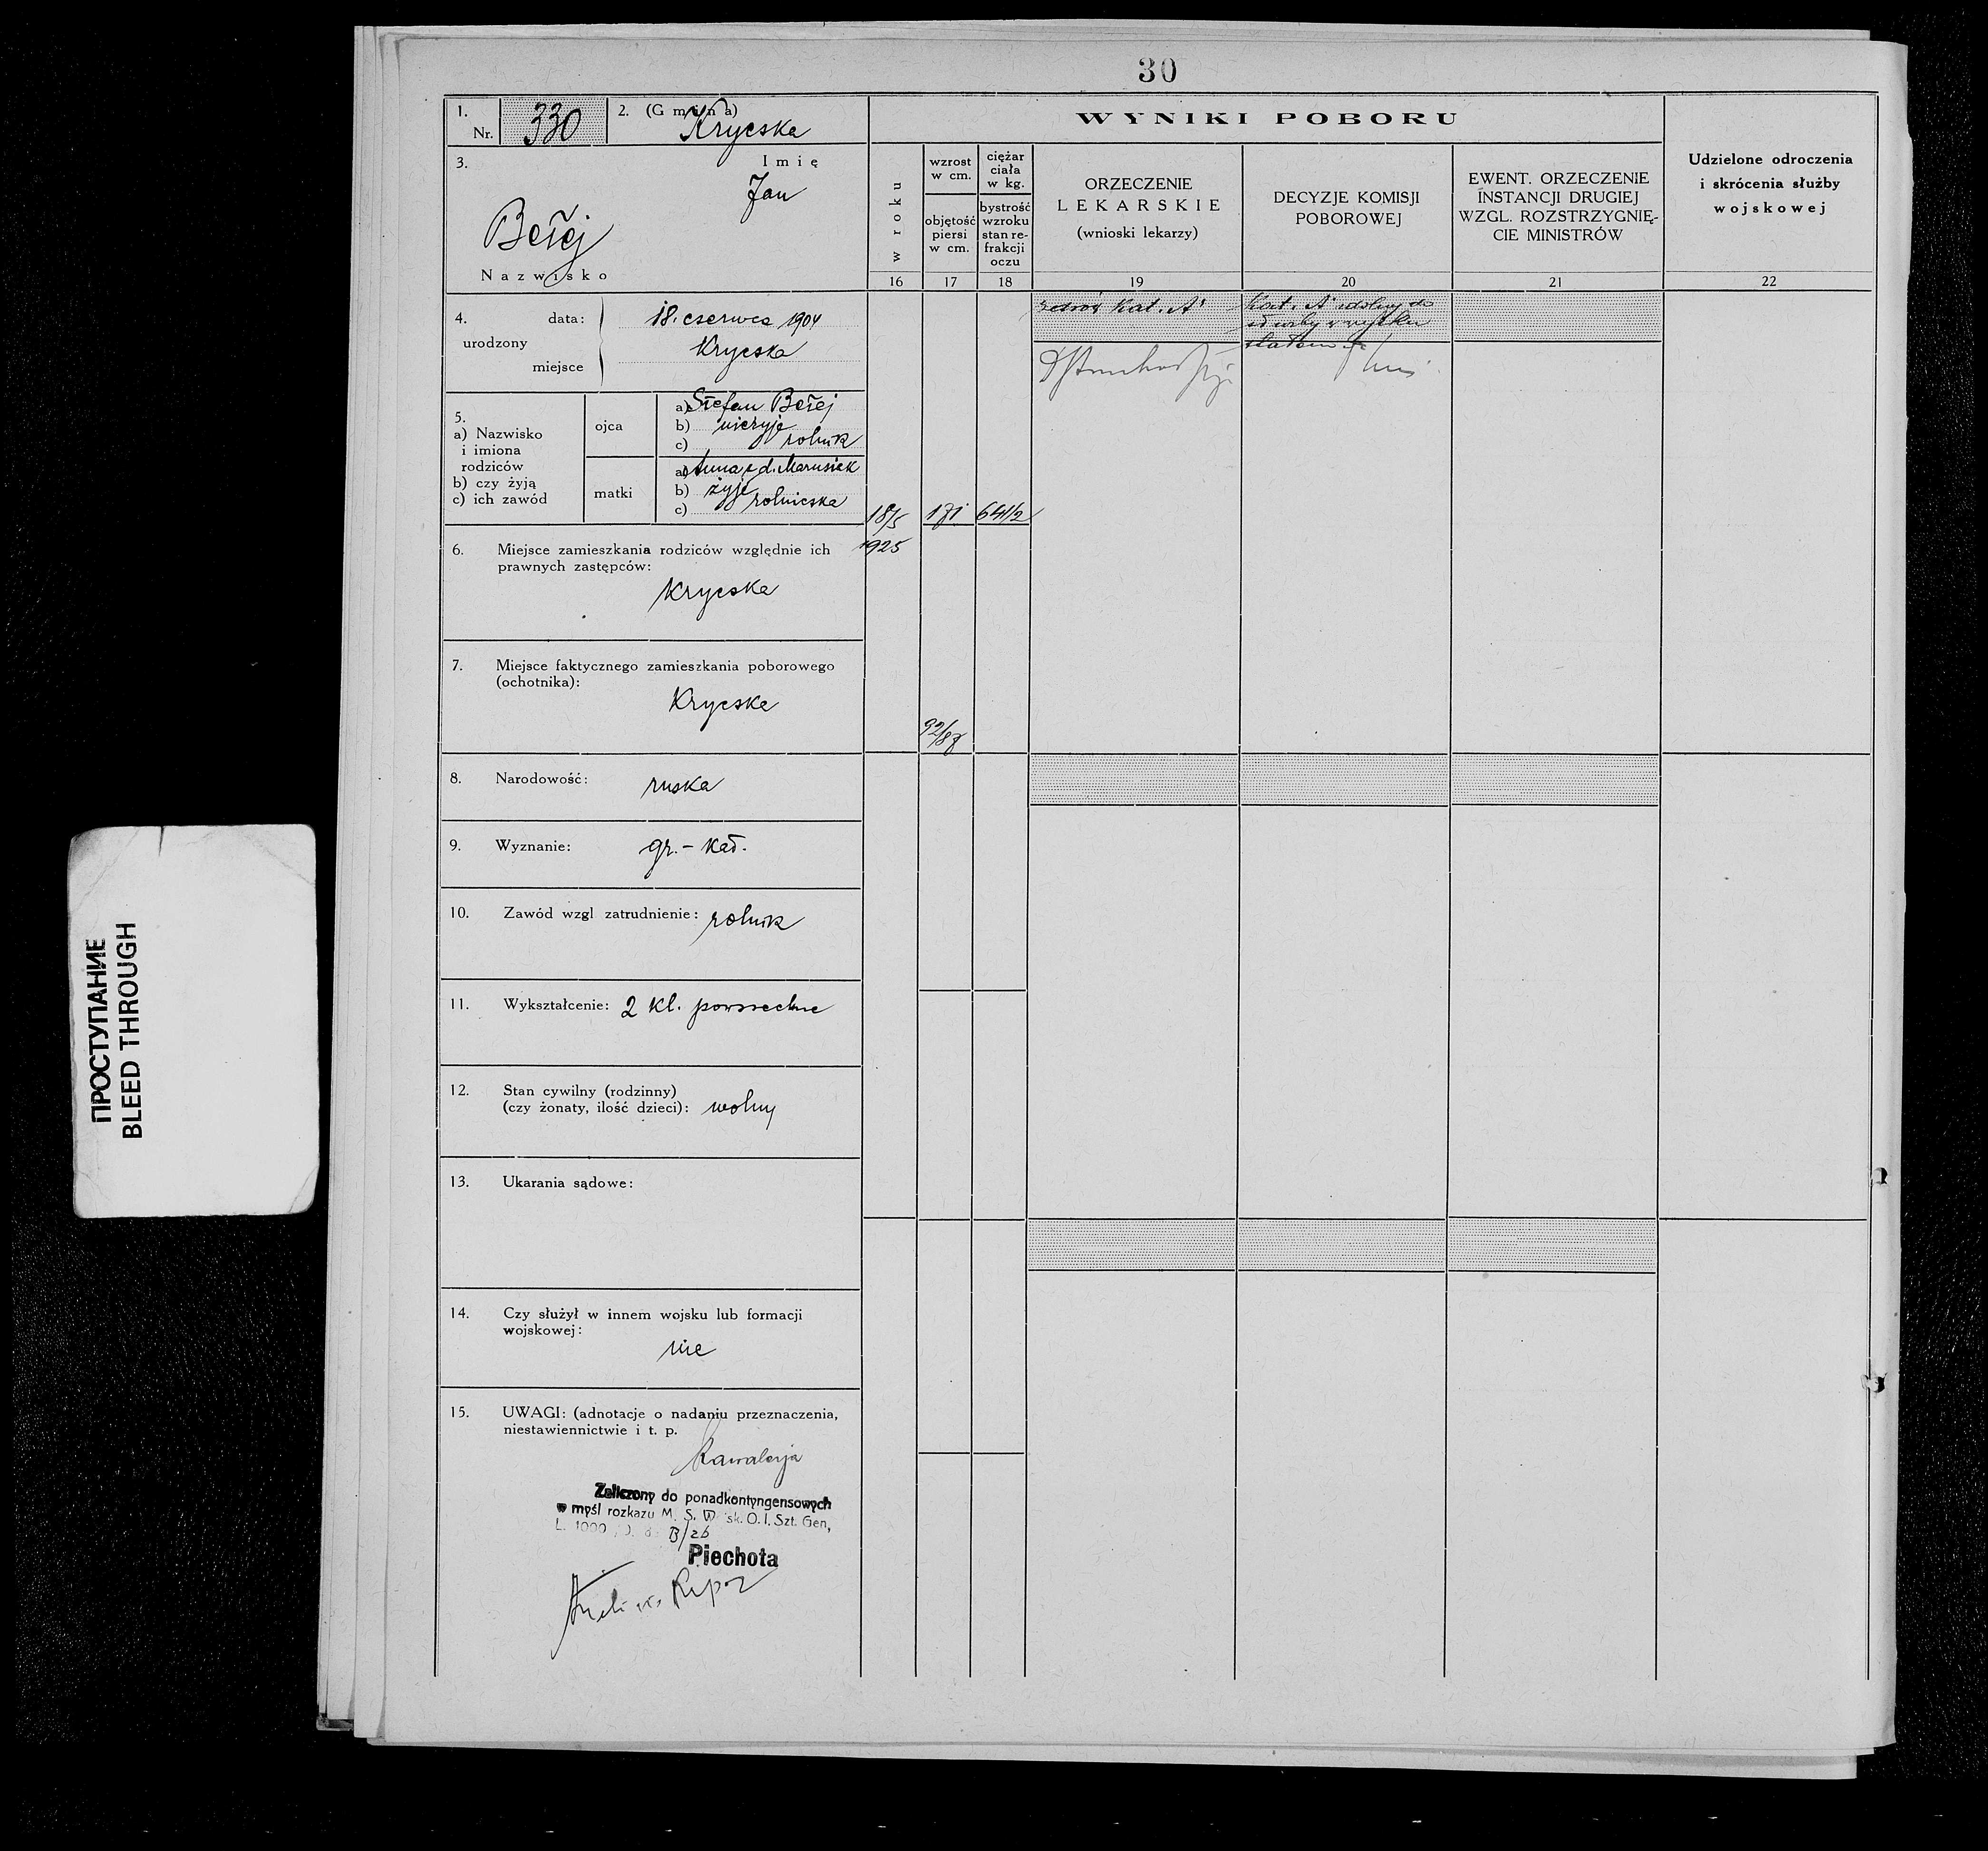 30
1. Nr. 330
2. (Gmina) Krycska
3. Imię
Jan
Bełej
Nazwisko
4. urodzony
data: 18. czerwca 1904
miejsce Krycska
5.
a) Nazwisko i imiona rodziców
b) czy żyją
c) ich zawód
ojca
a) Stefan Bełej
b) nieżyje
c) rolnik
matki
a) Anna z d. Marusiak
b) żyje
c) rolniczka
6. Miejsce zamieszkania rodziców względnie ich
prawnych zastępców:
Krycska
7. Miejsce faktycznego zamieszkania poborowego
(ochotnika):
Krycska
8. Narodowość: ruska
9. Wyznanie: gr.-kat.
10. Zawód wzgl zatrudnienie: rolnik
11. Wykształcenie: 2 kl. powszechne
12. Stan cywilny (rodzinny)
(czy żonaty, ilość dzieci): wolny
13. Ukarania sądowe:
14. Czy służył w innem wojsku lub formacji
wojskowej:
nie
15. UWAGI: (adnotacje o nadaniu przeznaczenia,
niestawiennictwie i t. p.
Kawalerja
Zaliczony do ponadkontyngensowych
w myśl rozkazu M. S. Wojsk. O. I. Szt. Gen,
L. 1000
B/26
Piechota
WYNIKI POBORU
w roku
16
wzrost
w cm.
objętość
piersi
w cm.
17
ciężar
ciała
w kg.
bystrość
wzroku
stan re-
frakcji
oczu
18
ORZECZENIE
LEKARSKIE
(wnioski lekarzy)
19
DECYZJE KOMISJI
POBOROWEJ
20
EWENT. ORZECZENIE
INSTANCJI DRUGIEJ
WZGL. ROZSTRZYGNIĘ-
CIE MINISTRÓW
21
Udzielone odroczenia
i skrócenia służby
wojskowej
22
18/5
1925
171
64 1/2
92/87
zdrów Kat. A
Kat. A zdolny do
służby w wojsku
stałem
ПРОСТУПАНИЕ
BLEED THROUGH